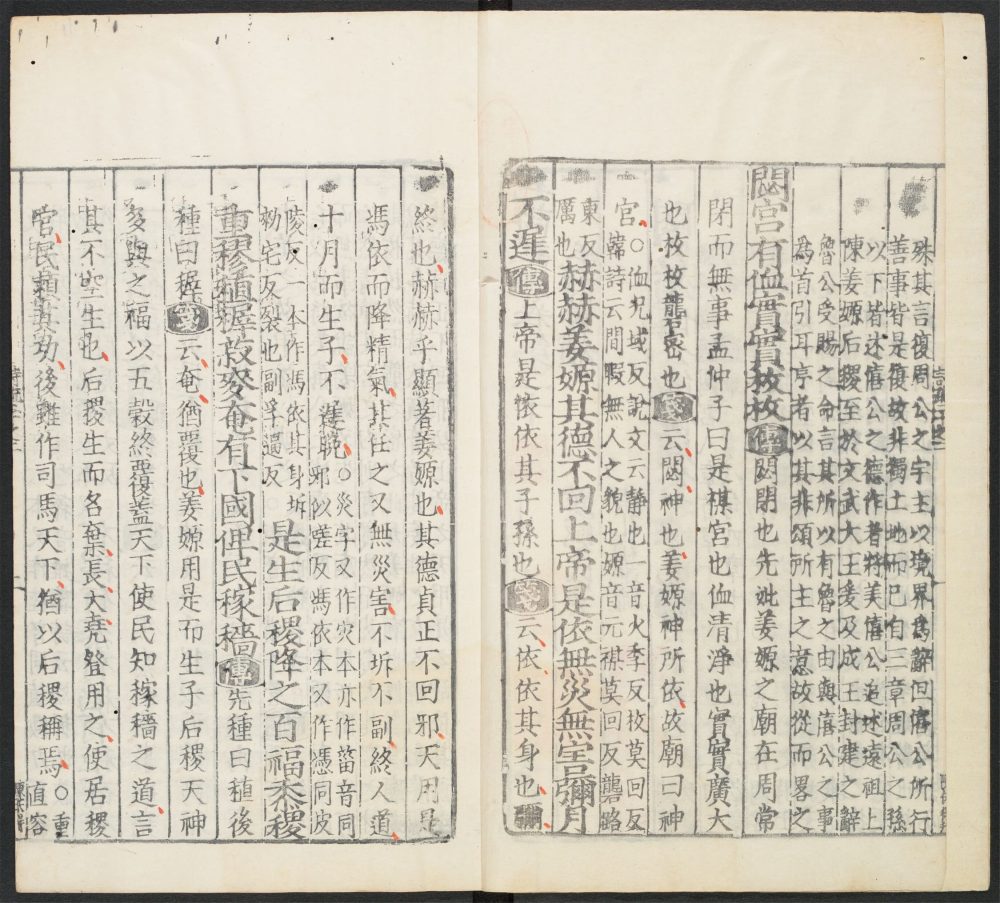 殊其言復周公之宇主以境界為辭但僖公所行
善事皆是復故非獨土地而已自三章周公之孫
以下皆述僖公之德作者將美僖公追述遠祖上
陳姜嫄后稷至於文武大王爰及成王封建之辭
魯公受賜之命言其所以有魯之由與僖公之事
為首引耳亨者以其非頌所主之意故從而畧之
閟宮有侐實實枚枚傳閟閉也先妣姜嫄之廟在周常
閉而無事孟仲子曰是禖宮也侐清淨也實實廣大
也枚枚礲密也箋云閟神也姜嫄神所依故廟曰神
宮○侐況域反說文云靜也一音火季反枚莫回反
韓詩云閒暇無人之貌也嫄音元禖莫回反礲路
東反
厲也赫赫姜嫄其德不回上帝是依無災無害彌月
不遲傳上帝是依依其子孫也箋云依依其身也彌
終也赫赫乎顯著姜嫄也其德貞正不回邪天用是
馮依而降精氣其任之又無災害不坼不副終人道
十月而生子不遲晚○災字又作灾本亦作菑音同
邪似嗟反馮依本又作憑同皮
陵反一本作馮依其身坼
勑宅反裂也副孚逼反
是生后稷降之百福黍稷
重穋稙穉菽麥奄有下國俾民稼穡傳先種曰稙後
種曰穉箋云奄猶覆也姜嫄用是而生子后稷天神
多與之福以五穀終覆蓋天下使民知稼穡之道言
其不空生也后稷生而名棄長大堯登用之使居稷
官民賴其功後雖作司馬天下猶以后稷稱焉○重
直容